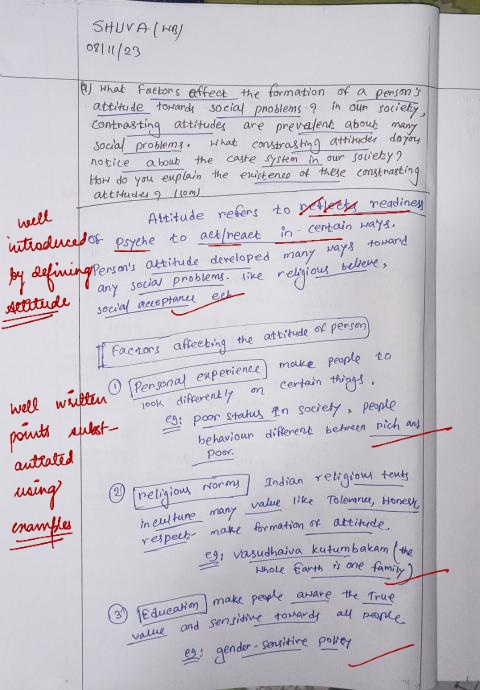 SHUVA (WB)
08/11/23
Q) What Factors affect the formation of a person's
attitude towards social problems? in our society,
Contrasting attitudes are prevalent about many
social problems. What constrasting attitudes do you
notice about the caste system in our society?
How do you explain the existence of these constrasting
attitudes? (10m)
well
introduced
by defining
attitude
Attitude refers to reflects readiness
of psyche to act/react in certain ways.
Person's attitude developed many ways toward
any social problems. like religious believe,
social acceptance etc.
Factors affecting the attitude of person
well written
points subst-
antiated
using
examples
① Personal experience make people to
look differently on certain things.
eg: poor status in society, people
behaviour different between rich and
poor.
② religious norms Indian religious texts
inculture many value like Tolerance, Honesty
respect- make formation of attitude.
eg: vasudhaiva kutumbakam (the
whole Earth is one family)
③ Education make people aware the True
value and sensitive towards all people
eg: gender-sensitive policy